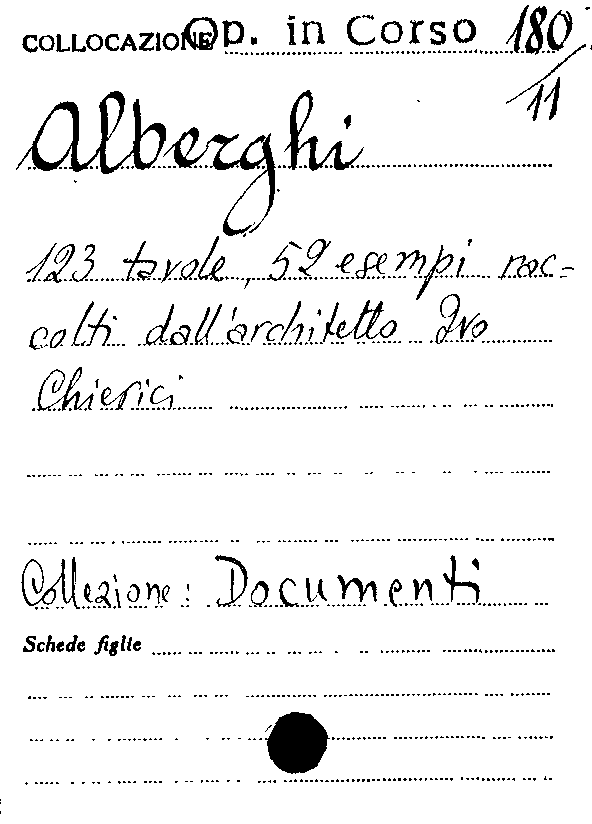 COLLOCAZIONE Op. in Corso 180/11
Alberghi
123 tavole, 52 esempi rac=
colti dall'architetto Ivo
Chierici
Collezione: Documenti
Schede figlie